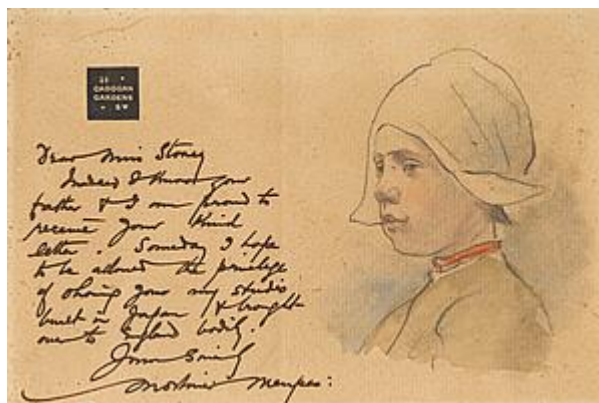 25
CADOGAN
GARDENS
SW
Dear Miss Stoney
Indeed I know your
father & I am proud to
receive your kind
letter. Someday I hope
to be allowed the privilege
of showing you my studio
built in Japan & brought
over to England bodily.
Yours Sincerely
Mortimer Menpes: